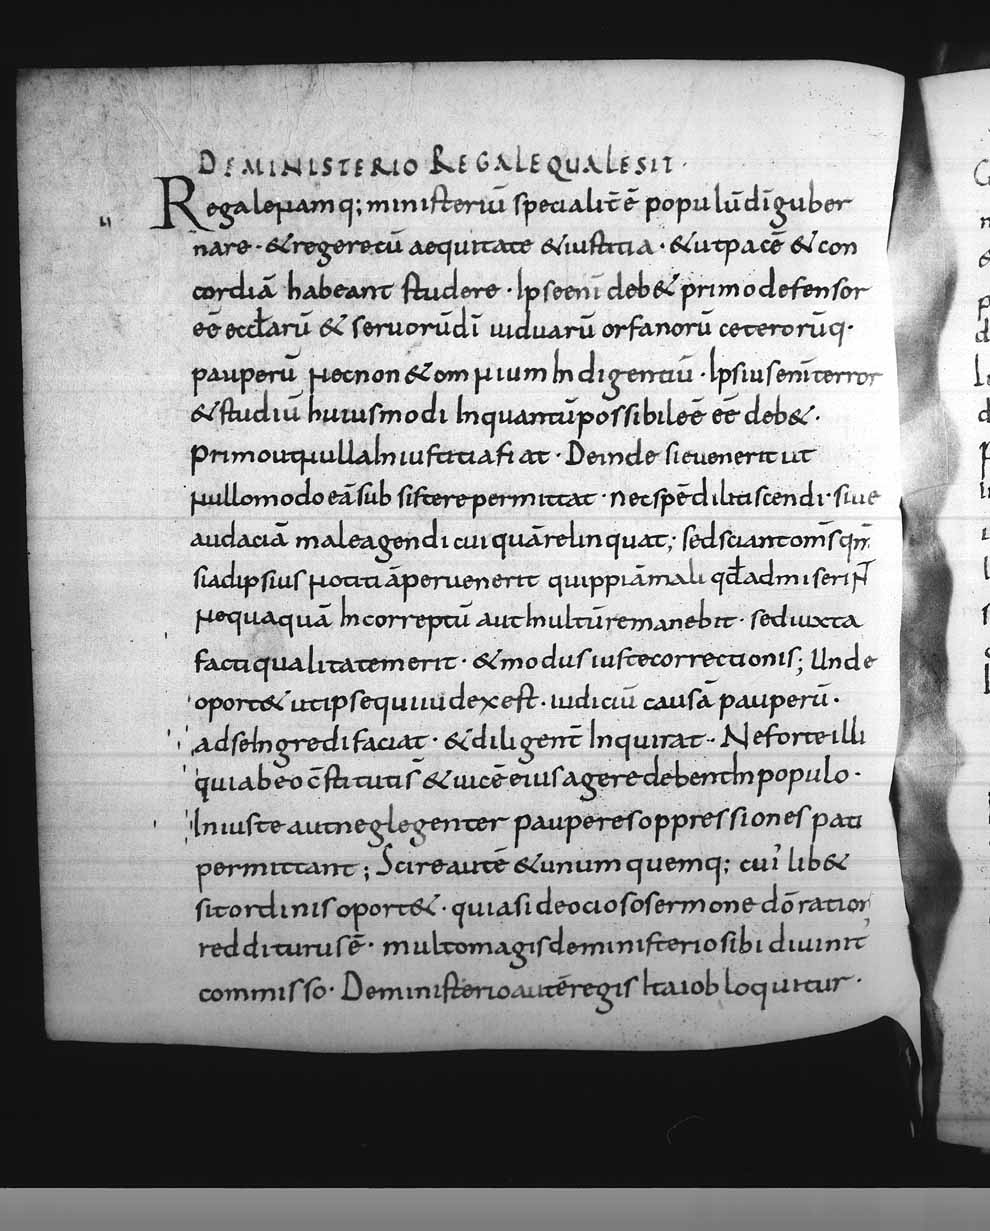 DE MINISTERIO REGALE QUALE SIT·
Regale namq; ministeriū specialit̄ ē populū dī guber
nare· & regere cū aequitate & iustitia· & ut pacē & con
cordiā habeant studere· Ipse eni deb& primo defensor
eē eccłarū & seruorū dī uiduarū orfanorū ceterorūq·
pauperū necnon & omnium Indigentiū· Ipsius eni terror
& studiū huiusmodi Inquantū possibile ē eē deb&·
primo ut nulla Iniustitia fiat· Deinde si euenerit ut
nullomodo eā subsistere permittat· nec spē dilitiscendi· siue
audaciā male agendi cuiquā relinquat; sed sciant om̄s qm̄
si ad ipsius notitiā peruenerit quippiā mali qđ admiserint
nequaquā Incorreptū aut Inultū remanebit· sed iuxta
facti qualitatem erit· & modus iuste correctionis; Unde
oport& ut ipse qui iudex est· iudiciū causā pauperū·
ad se Ingredi faciat· & diligent̄ Inquirat· Ne forte illi
qui ab eo c̄stituti s̄ & uicē eius agere debent In populo·
Iniuste aut neglegenter pauperes oppressiones pati
permittant; Scire autē & unumquemq; cui lib&
sit ordinis oport&· quia si de ocioso sermone dō ratior
redditurus ē· multo magis de ministerio sibi diuinit'
commisso· De ministerio autē regis Ita iob loquitur·